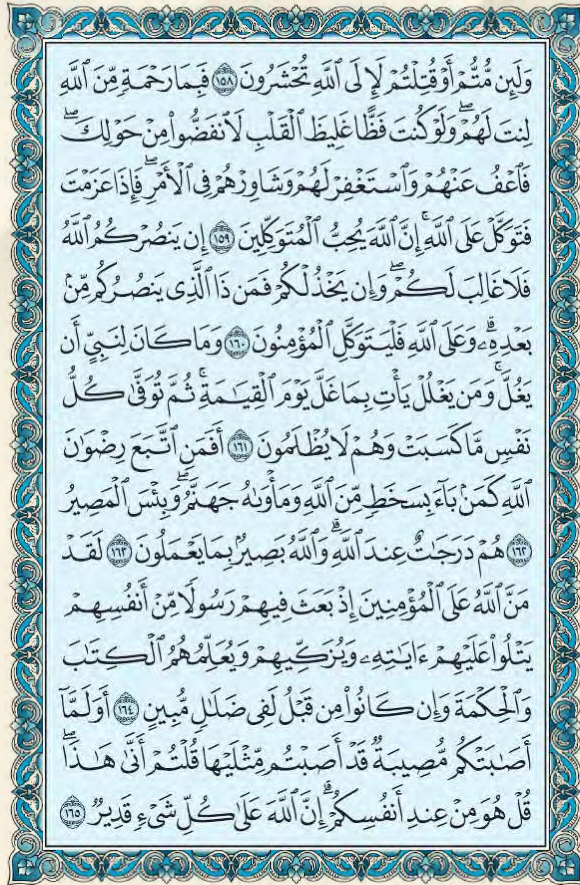 وَلَئِن مُّتُّمْ أَوْ قُتِلْتُمْ لَإِلَى ٱللَّهِ تُحْشَرُونَ ١٥٨ فَبِمَا رَحْمَةٍ مِّنَ ٱللَّهِ
لِنتَ لَهُمْۖ وَلَوْ كُنتَ فَظًّا غَلِيظَ ٱلْقَلْبِ لَٱنفَضُّوا۟ مِنْ حَوْلِكَۖ
فَٱعْفُ عَنْهُمْ وَٱسْتَغْفِرْ لَهُمْ وَشَاوِرْهُمْ فِى ٱلْأَمْرِۖ فَإِذَا عَزَمْتَ
فَتَوَكَّلْ عَلَى ٱللَّهِۚ إِنَّ ٱللَّهَ يُحِبُّ ٱلْمُتَوَكِّلِينَ ١٥٩ إِن يَنصُرْكُمُ ٱللَّهُ
فَلَا غَالِبَ لَكُمْۖ وَإِن يَخْذُلْكُمْ فَمَن ذَا ٱلَّذِى يَنصُرُكُم مِّنۢ
بَعْدِهِۦۗ وَعَلَى ٱللَّهِ فَلْيَتَوَكَّلِ ٱلْمُؤْمِنُونَ ١٦٠ وَمَا كَانَ لِنَبِىٍّ أَن
يَغُلَّۚ وَمَن يَغْلُلْ يَأْتِ بِمَا غَلَّ يَوْمَ ٱلْقِيَٰمَةِۚ ثُمَّ تُوَفَّىٰ كُلُّ
نَفْسٍ مَّا كَسَبَتْ وَهُمْ لَا يُظْلَمُونَ ١٦١ أَفَمَنِ ٱتَّبَعَ رِضْوَٰنَ
ٱللَّهِ كَمَنۢ بَآءَ بِسَخَطٍ مِّنَ ٱللَّهِ وَمَأْوَىٰهُ جَهَنَّمُۖ وَبِئْسَ ٱلْمَصِيرُ
١٦٢ هُمْ دَرَجَٰتٌ عِندَ ٱللَّهِۗ وَٱللَّهُ بَصِيرٌۢ بِمَا يَعْمَلُونَ ١٦٣ لَقَدْ
مَنَّ ٱللَّهُ عَلَى ٱلْمُؤْمِنِينَ إِذْ بَعَثَ فِيهِمْ رَسُولًا مِّنْ أَنفُسِهِمْ
يَتْلُوا۟ عَلَيْهِمْ ءَايَٰتِهِۦ وَيُزَكِّيهِمْ وَيُعَلِّمُهُمُ ٱلْكِتَٰبَ
وَٱلْحِكْمَةَ وَإِن كَانُوا۟ مِن قَبْلُ لَفِى ضَلَٰلٍ مُّبِينٍ ١٦٤ أَوَلَمَّآ
أَصَٰبَتْكُم مُّصِيبَةٌ قَدْ أَصَبْتُم مِّثْلَيْهَا قُلْتُمْ أَنَّىٰ هَٰذَاۖ
قُلْ هُوَ مِنْ عِندِ أَنفُسِكُمْۗ إِنَّ ٱللَّهَ عَلَىٰ كُلِّ شَىْءٍ قَدِيرٌ ١٦٥